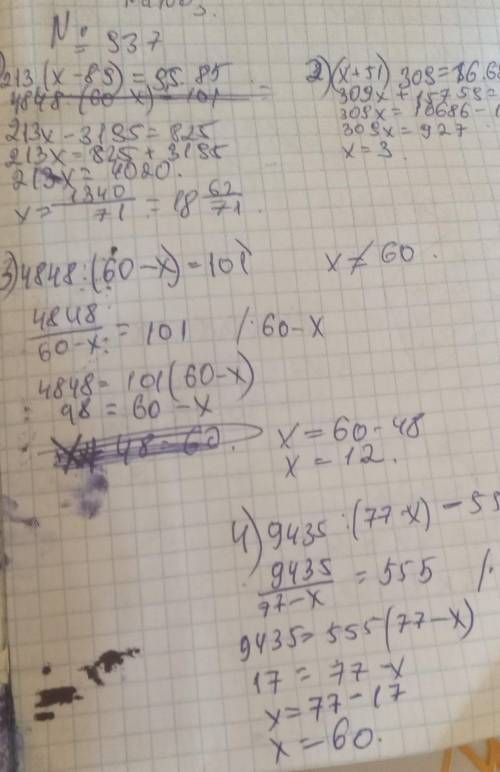 № 937
213(x-89) = 95.85
4848 (60 x) = 101
213x - 3195 = 825
213x = 825 + 3195
213x = 4020.
x = 1340/71 = 18 62/71.
2) (x+51) 309 = 16.68
309x + 15759 =
309x = 16686 - 1
309x = 927
x = 3.
3) 4848:(60-x) = 101 x ≠ 60.
4848/60-x = 101 /:60-x
4848 = 101(60-x)
98 = 60 - x
48 - 60.
x = 60 - 48
x = 12.
4) 9435:(77-x) - 55
9435/77-x = 555 /.
9435 = 555(77-x)
17 = 77 - x
x = 77 - 17
x = 60.